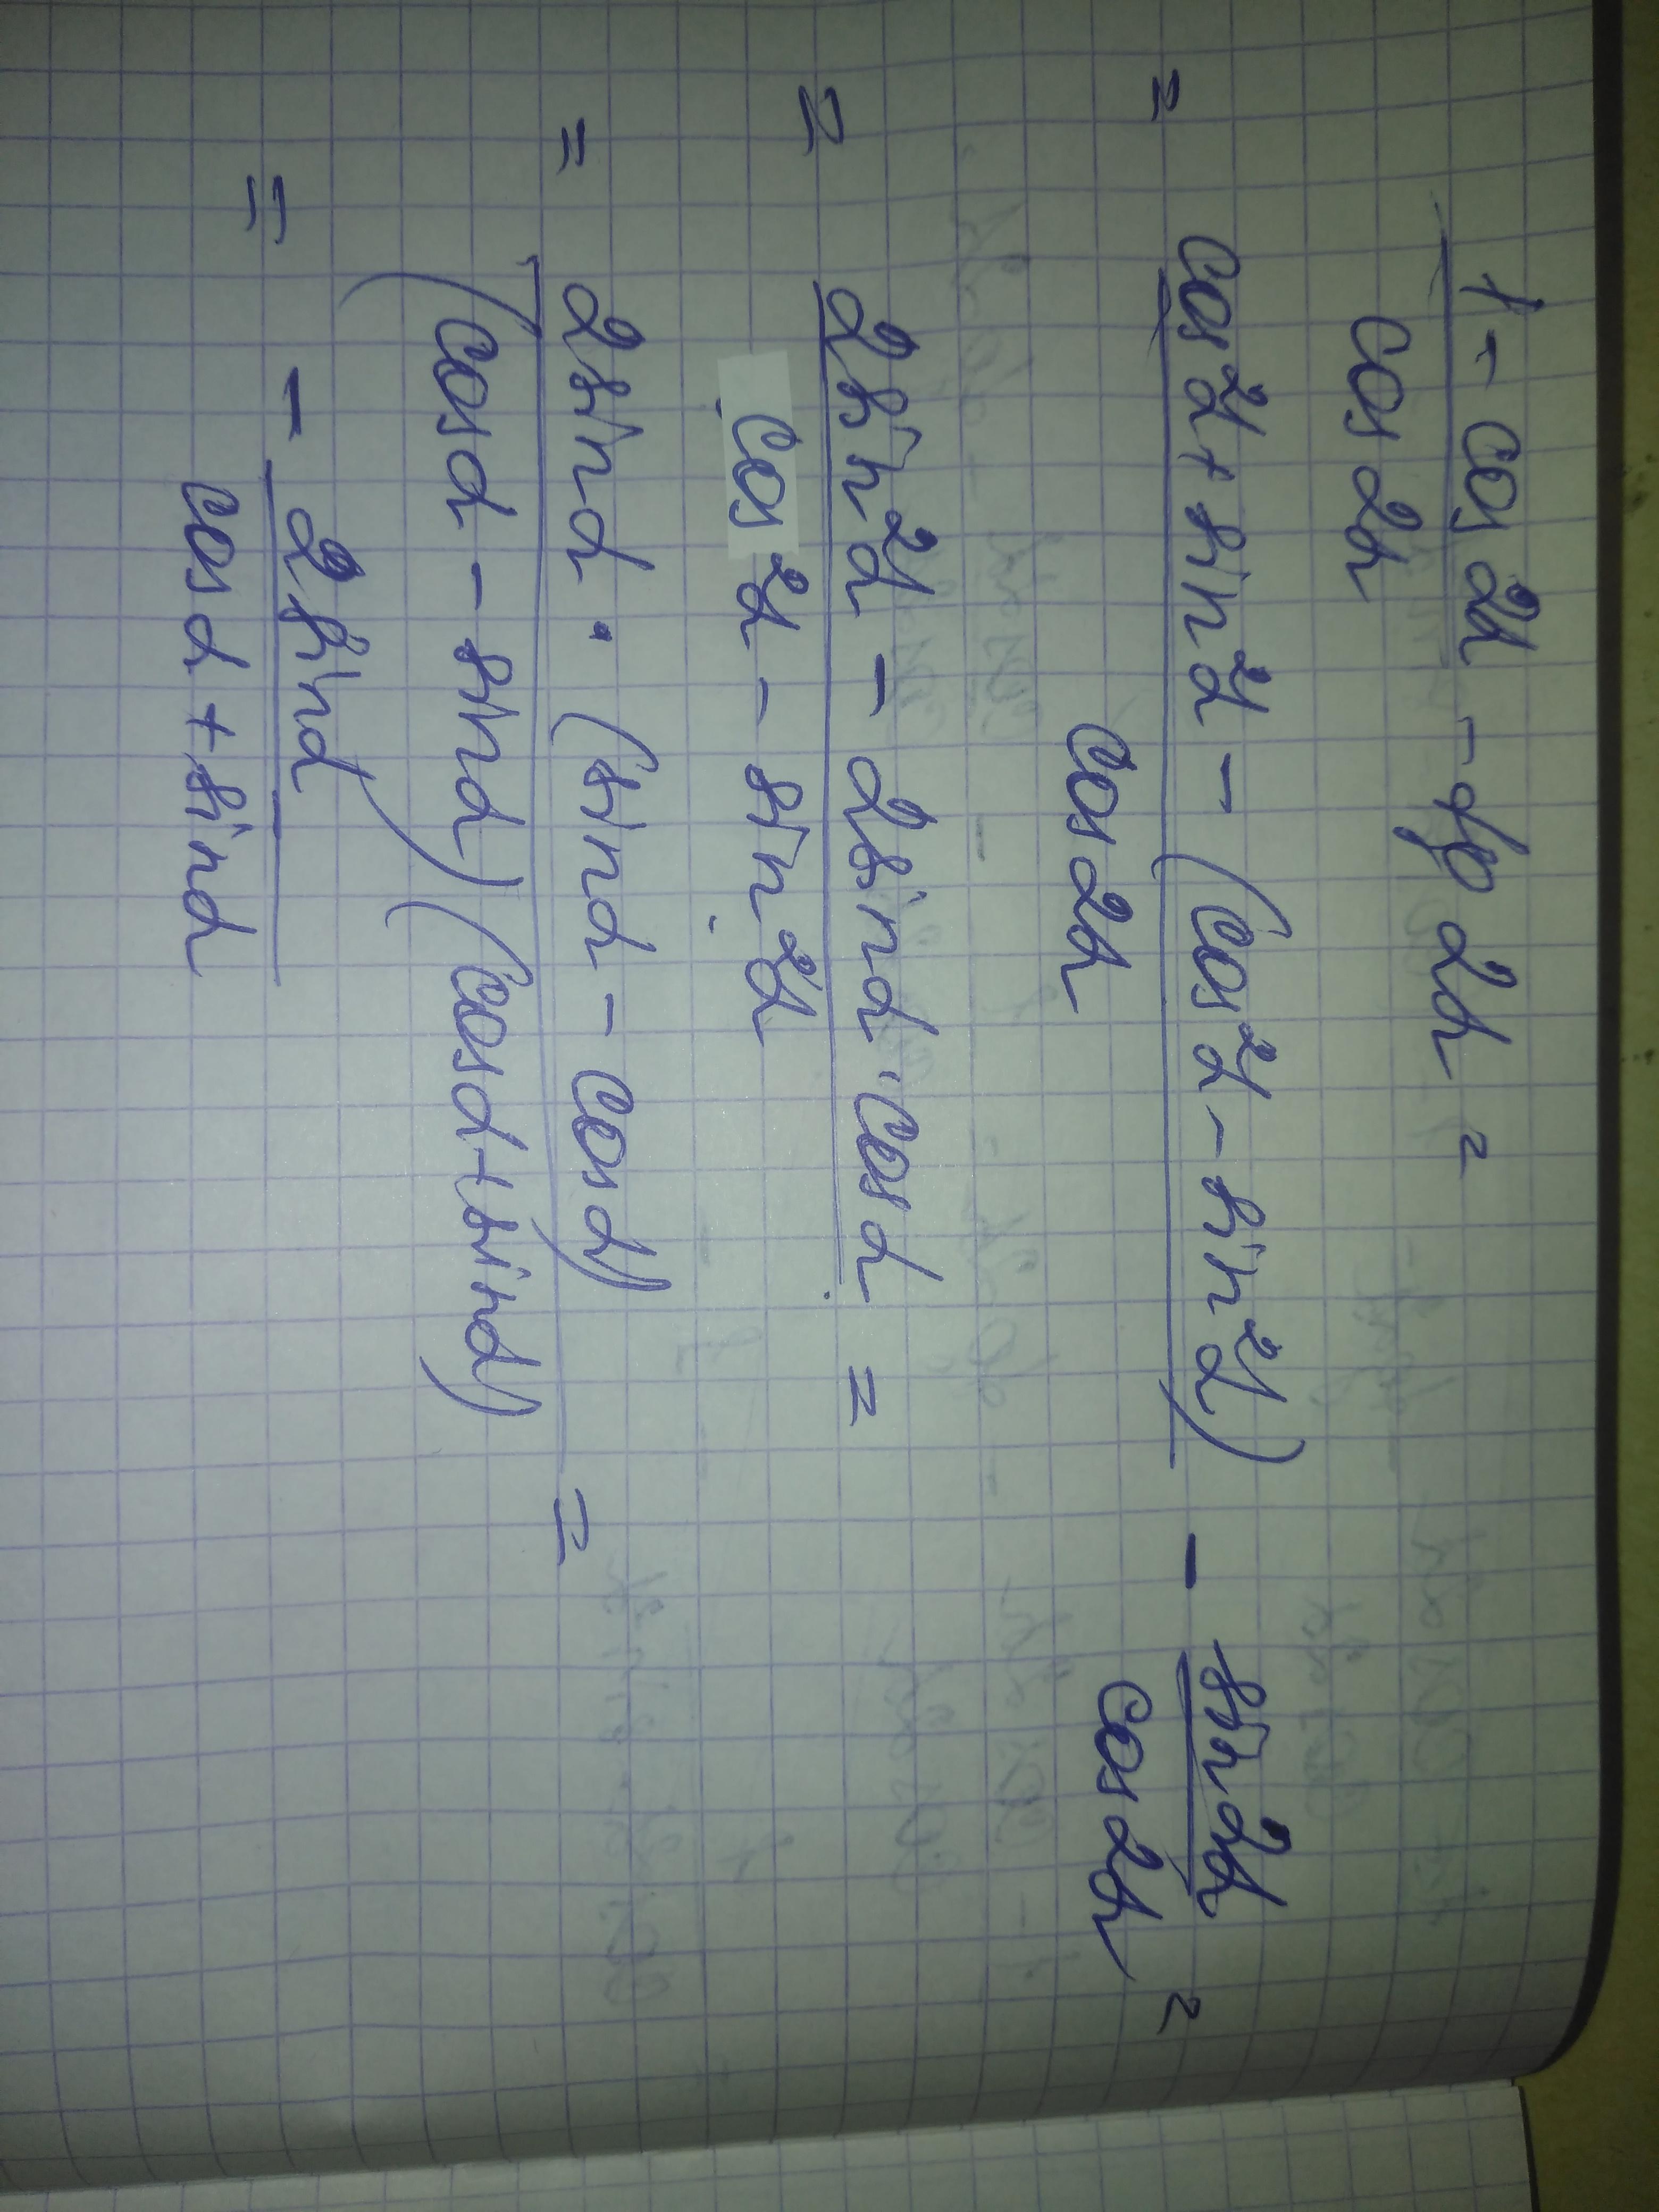 1 - cos 2α
cos 2α
- tg 2α =
= cos²α + sin²α - (cos²α - sin²α)
cos 2α
- sin 2α
cos 2α
=
= 2 sin²α - 2 sin α · cos α =
cos²α - sin²α
= 2 sin α · (sin α - cos α) =
(cos α - sin α)(cos α + sin α)
= - 2 sin α
cos α + sin α